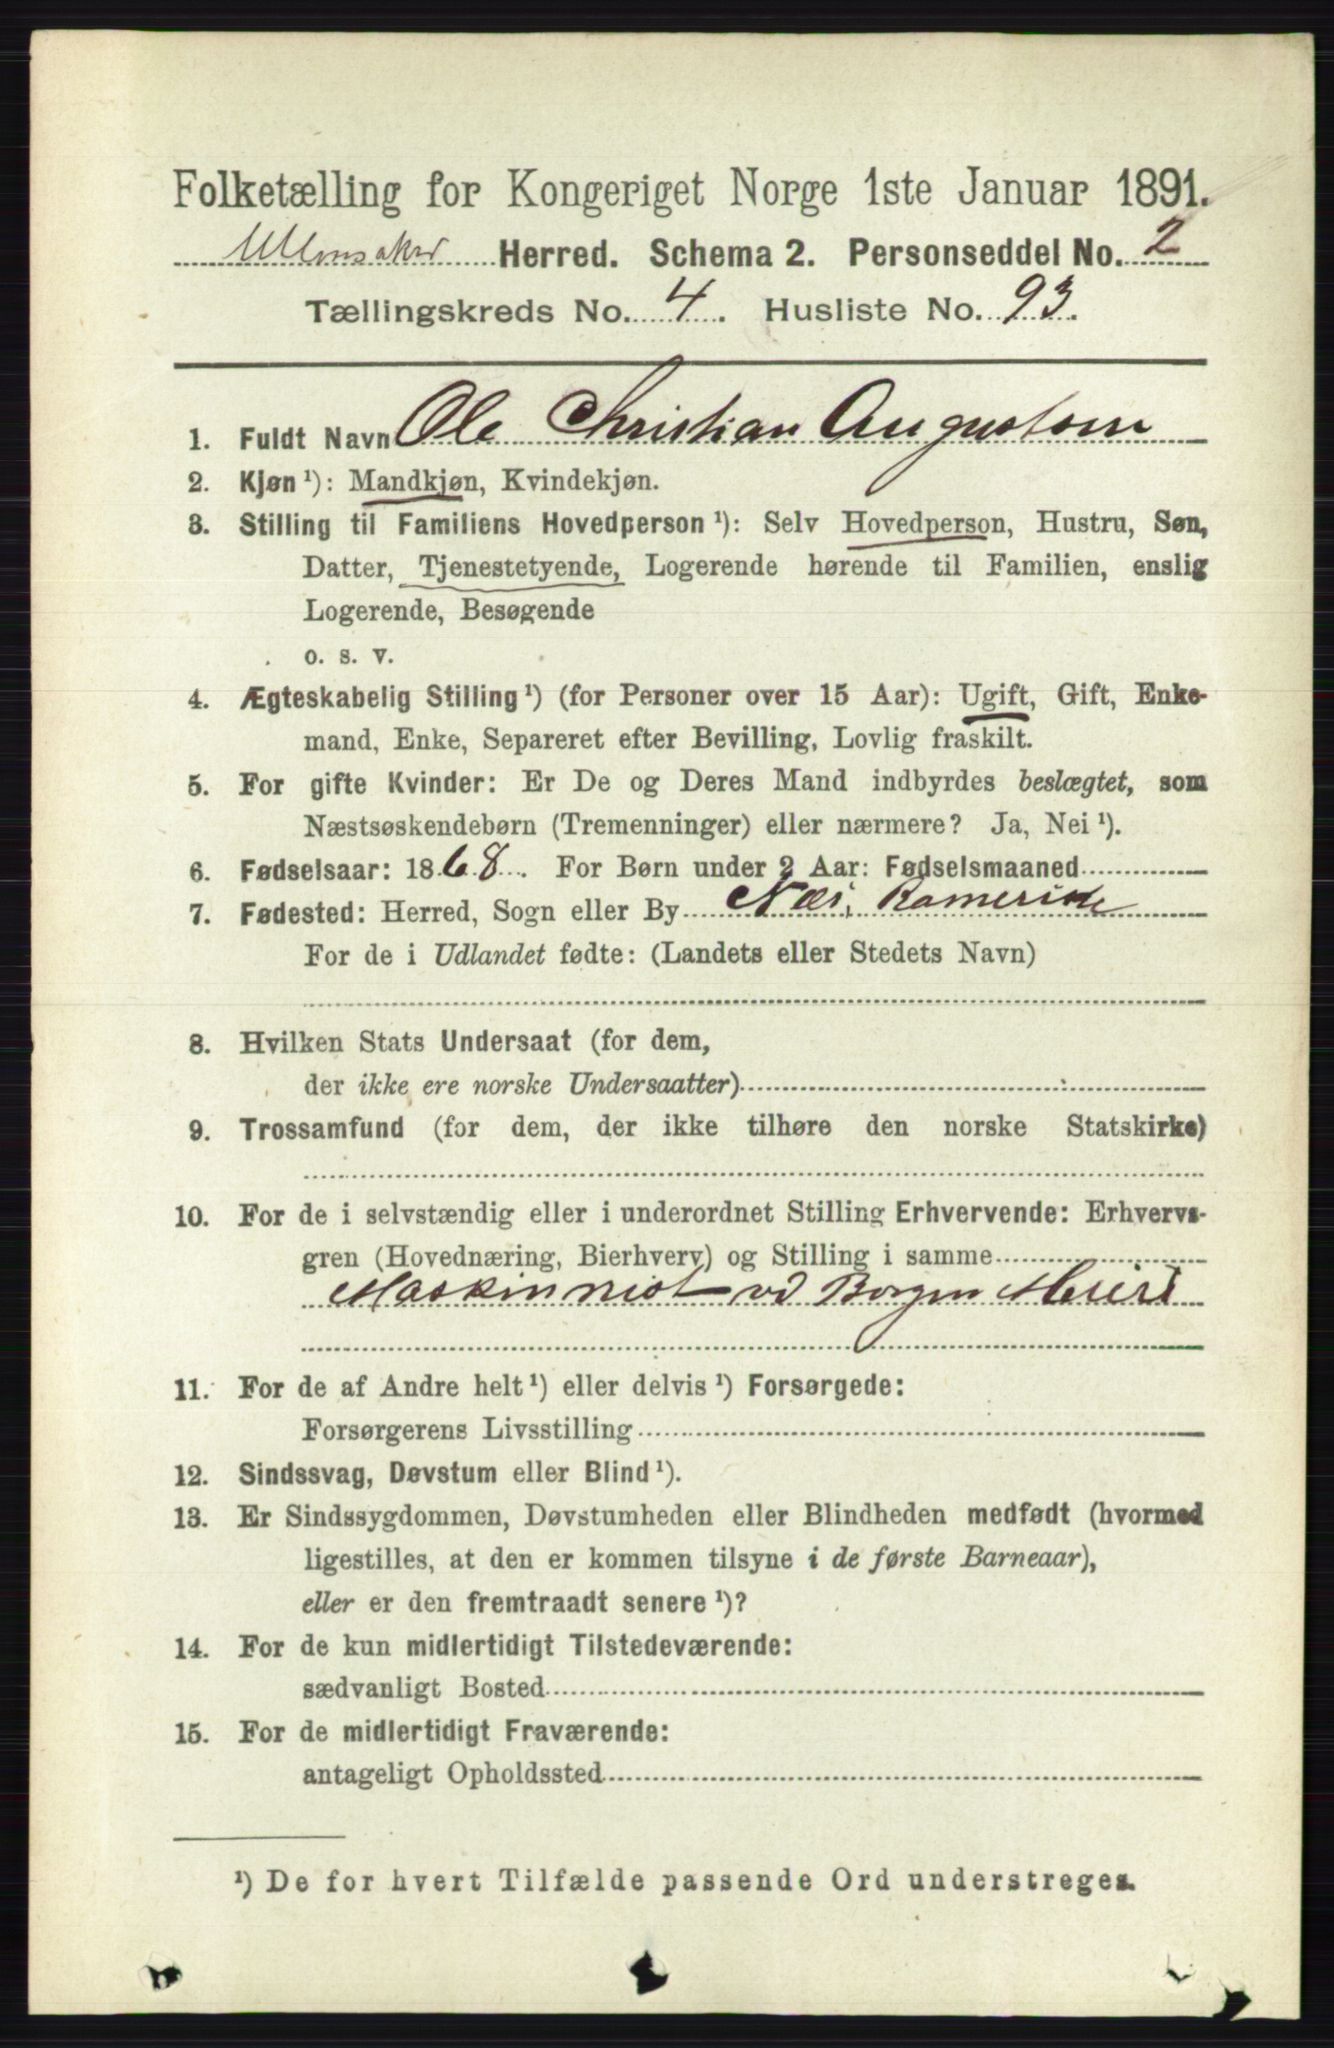 Folketælling for Kongeriget Norge 1ste Januar 1891.
Ullensaker Herred. Schema 2. Personseddel No. 2
Tællingskreds No. 4. Husliste No. 93.
1. Fuldt Navn Ole Christian Augustsen
2. Kjøn ¹): Mandkjøn, Kvindekjøn.
3. Stilling til Familiens Hovedperson ¹): Selv Hovedperson, Hustru, Søn,
Datter, Tjenestetyende, Logerende hørende til Familien, enslig
Logerende, Besøgende
o. s. v.
4. Ægteskabelig Stilling ¹) (for Personer over 15 Aar): Ugift, Gift, Enke-
mand, Enke, Separeret efter Bevilling, Lovlig fraskilt.
5. For gifte Kvinder: Er De og Deres Mand indbyrdes beslægtet, som
Næstsøskendebørn (Tremenninger) eller nærmere? Ja, Nei ¹).
6. Fødselsaar: 1868. For Børn under 2 Aar: Fødselsmaaned
7. Fødested: Herred, Sogn eller By Næs, Romerike
For de i Udlandet fødte: (Landets eller Stedets Navn)
8. Hvilken Stats Undersaat (for dem,
der ikke ere norske Undersaatter)
9. Trossamfund (for dem, der ikke tilhøre den norske Statskirke)
10. For de i selvstændig eller i underordnet Stilling Erhvervende: Erhvervs-
gren (Hovednæring, Bierhverv) og Stilling i samme
Maskinnist ved Borgen Meieri
11. For de af Andre helt ¹) eller delvis ¹) Forsørgede:
Forsørgerens Livsstilling
12. Sindssvag, Døvstum eller Blind ¹).
13. Er Sindssygdommen, Døvstumheden eller Blindheden medfødt (hvormed
ligestilles, at den er kommen tilsyne i de første Barneaar),
eller er den fremtraadt senere ¹)?
14. For de kun midlertidigt Tilstedeværende:
sædvanligt Bosted
15. For de midlertidigt Fraværende:
antageligt Opholdssted
¹) De for hvert Tilfælde passende Ord understreges.